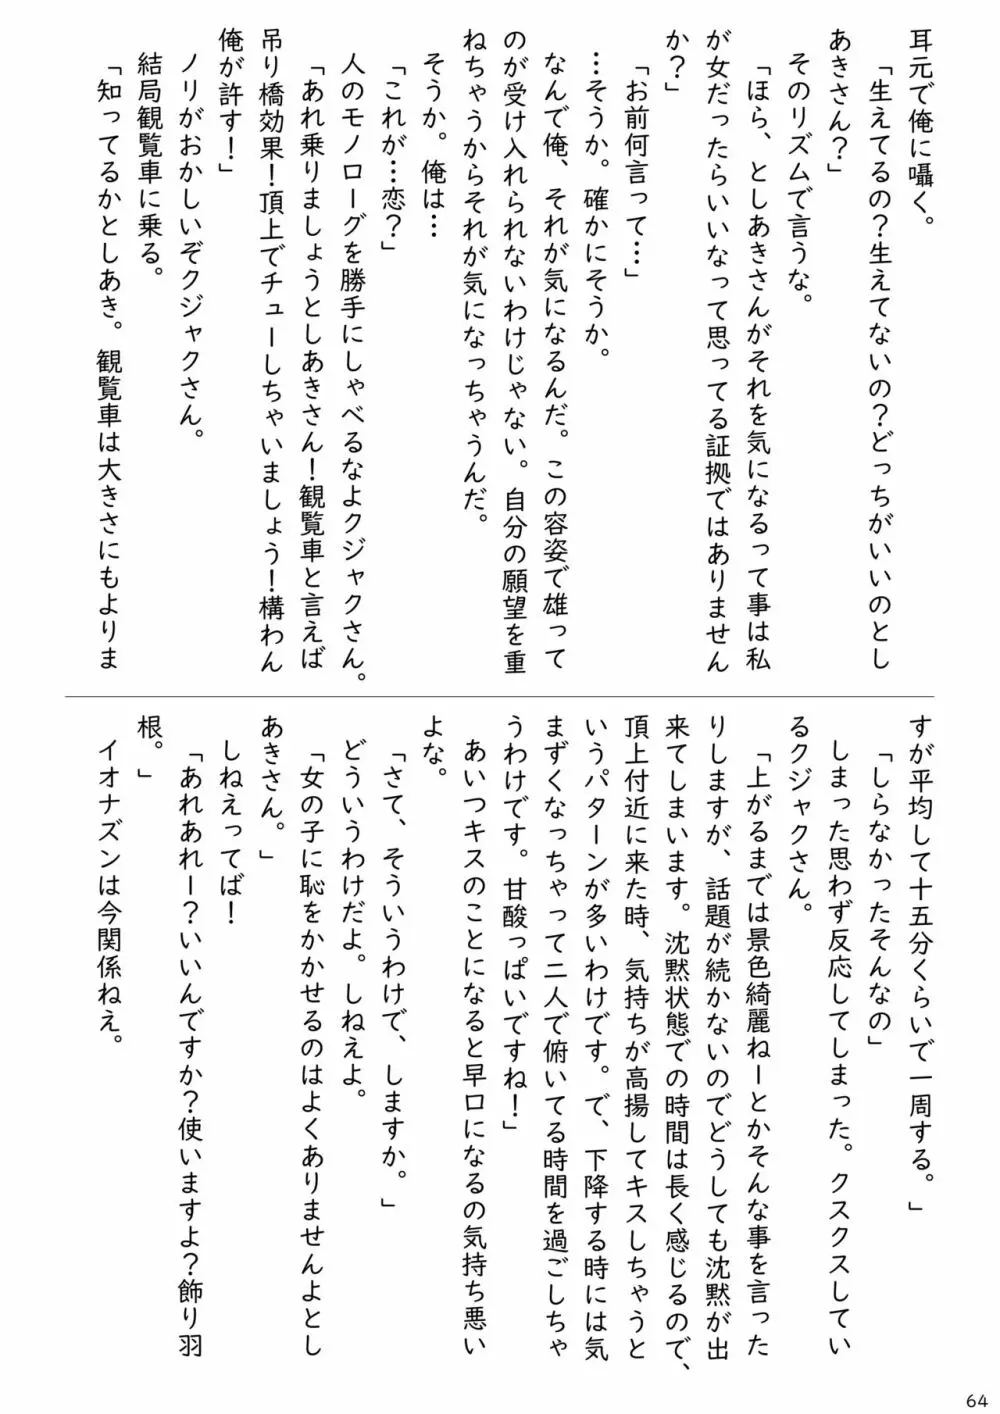 耳元で俺に囁く。
「生えてるの？生えてないの？どっちがいいのとし
あきさん？」
そのリズムで言うな。
「ほら、としあきさんがそれを気になるって事は私
が女だったらいいなって思ってる証拠ではありません
か？」
「お前何言って…」
…そうか。確かにそうか。
なんで俺、それが気になるんだ。この容姿で雄って
のが受け入れられないわけじゃない。自分の願望を重
ねちゃうからそれが気になっちゃうんだ。
そうか。俺は…
「これが…恋？」
人のモノローグを勝手にしゃべるなよクジャクさん。
「あれ乗りましょうとしあきさん！観覧車と言えば
吊り橋効果！頂上でチューしちゃいましょう！構わん
俺が許す！」
ノリがおかしいぞクジャクさん。
結局観覧車に乗る。
「知ってるかとしあき。観覧車は大きさにもよりま
すが平均して十五分くらいで一周する。」
「しらなかったそんなの」
しまった思わず反応してしまった。クスクスしてい
るクジャクさん。
「上がるまでは景色綺麗ねーとかそんな事を言った
りしますが、話題が続かないのでどうしても沈黙が出
来てしまいます。沈黙状態での時間は長く感じるので、
頂上付近に来た時、気持ちが高揚してキスしちゃうと
いうパターンが多いわけです。で、下降する時には気
まずくなっちゃって二人で俯いてる時間を過ごしちゃ
うわけです。甘酸っぱいですね！」
あいつキスのことになると早口になるの気持ち悪い
よな。
「さて、そういうわけで、しますか。」
どういうわけだよ。しねえよ。
「女の子に恥をかかせるのはよくありませんよとし
あきさん。」
しねえってば！
「あれあれー？いいんですか？使いますよ？飾り羽
根。」
イオナズンは今関係ねえ。
64